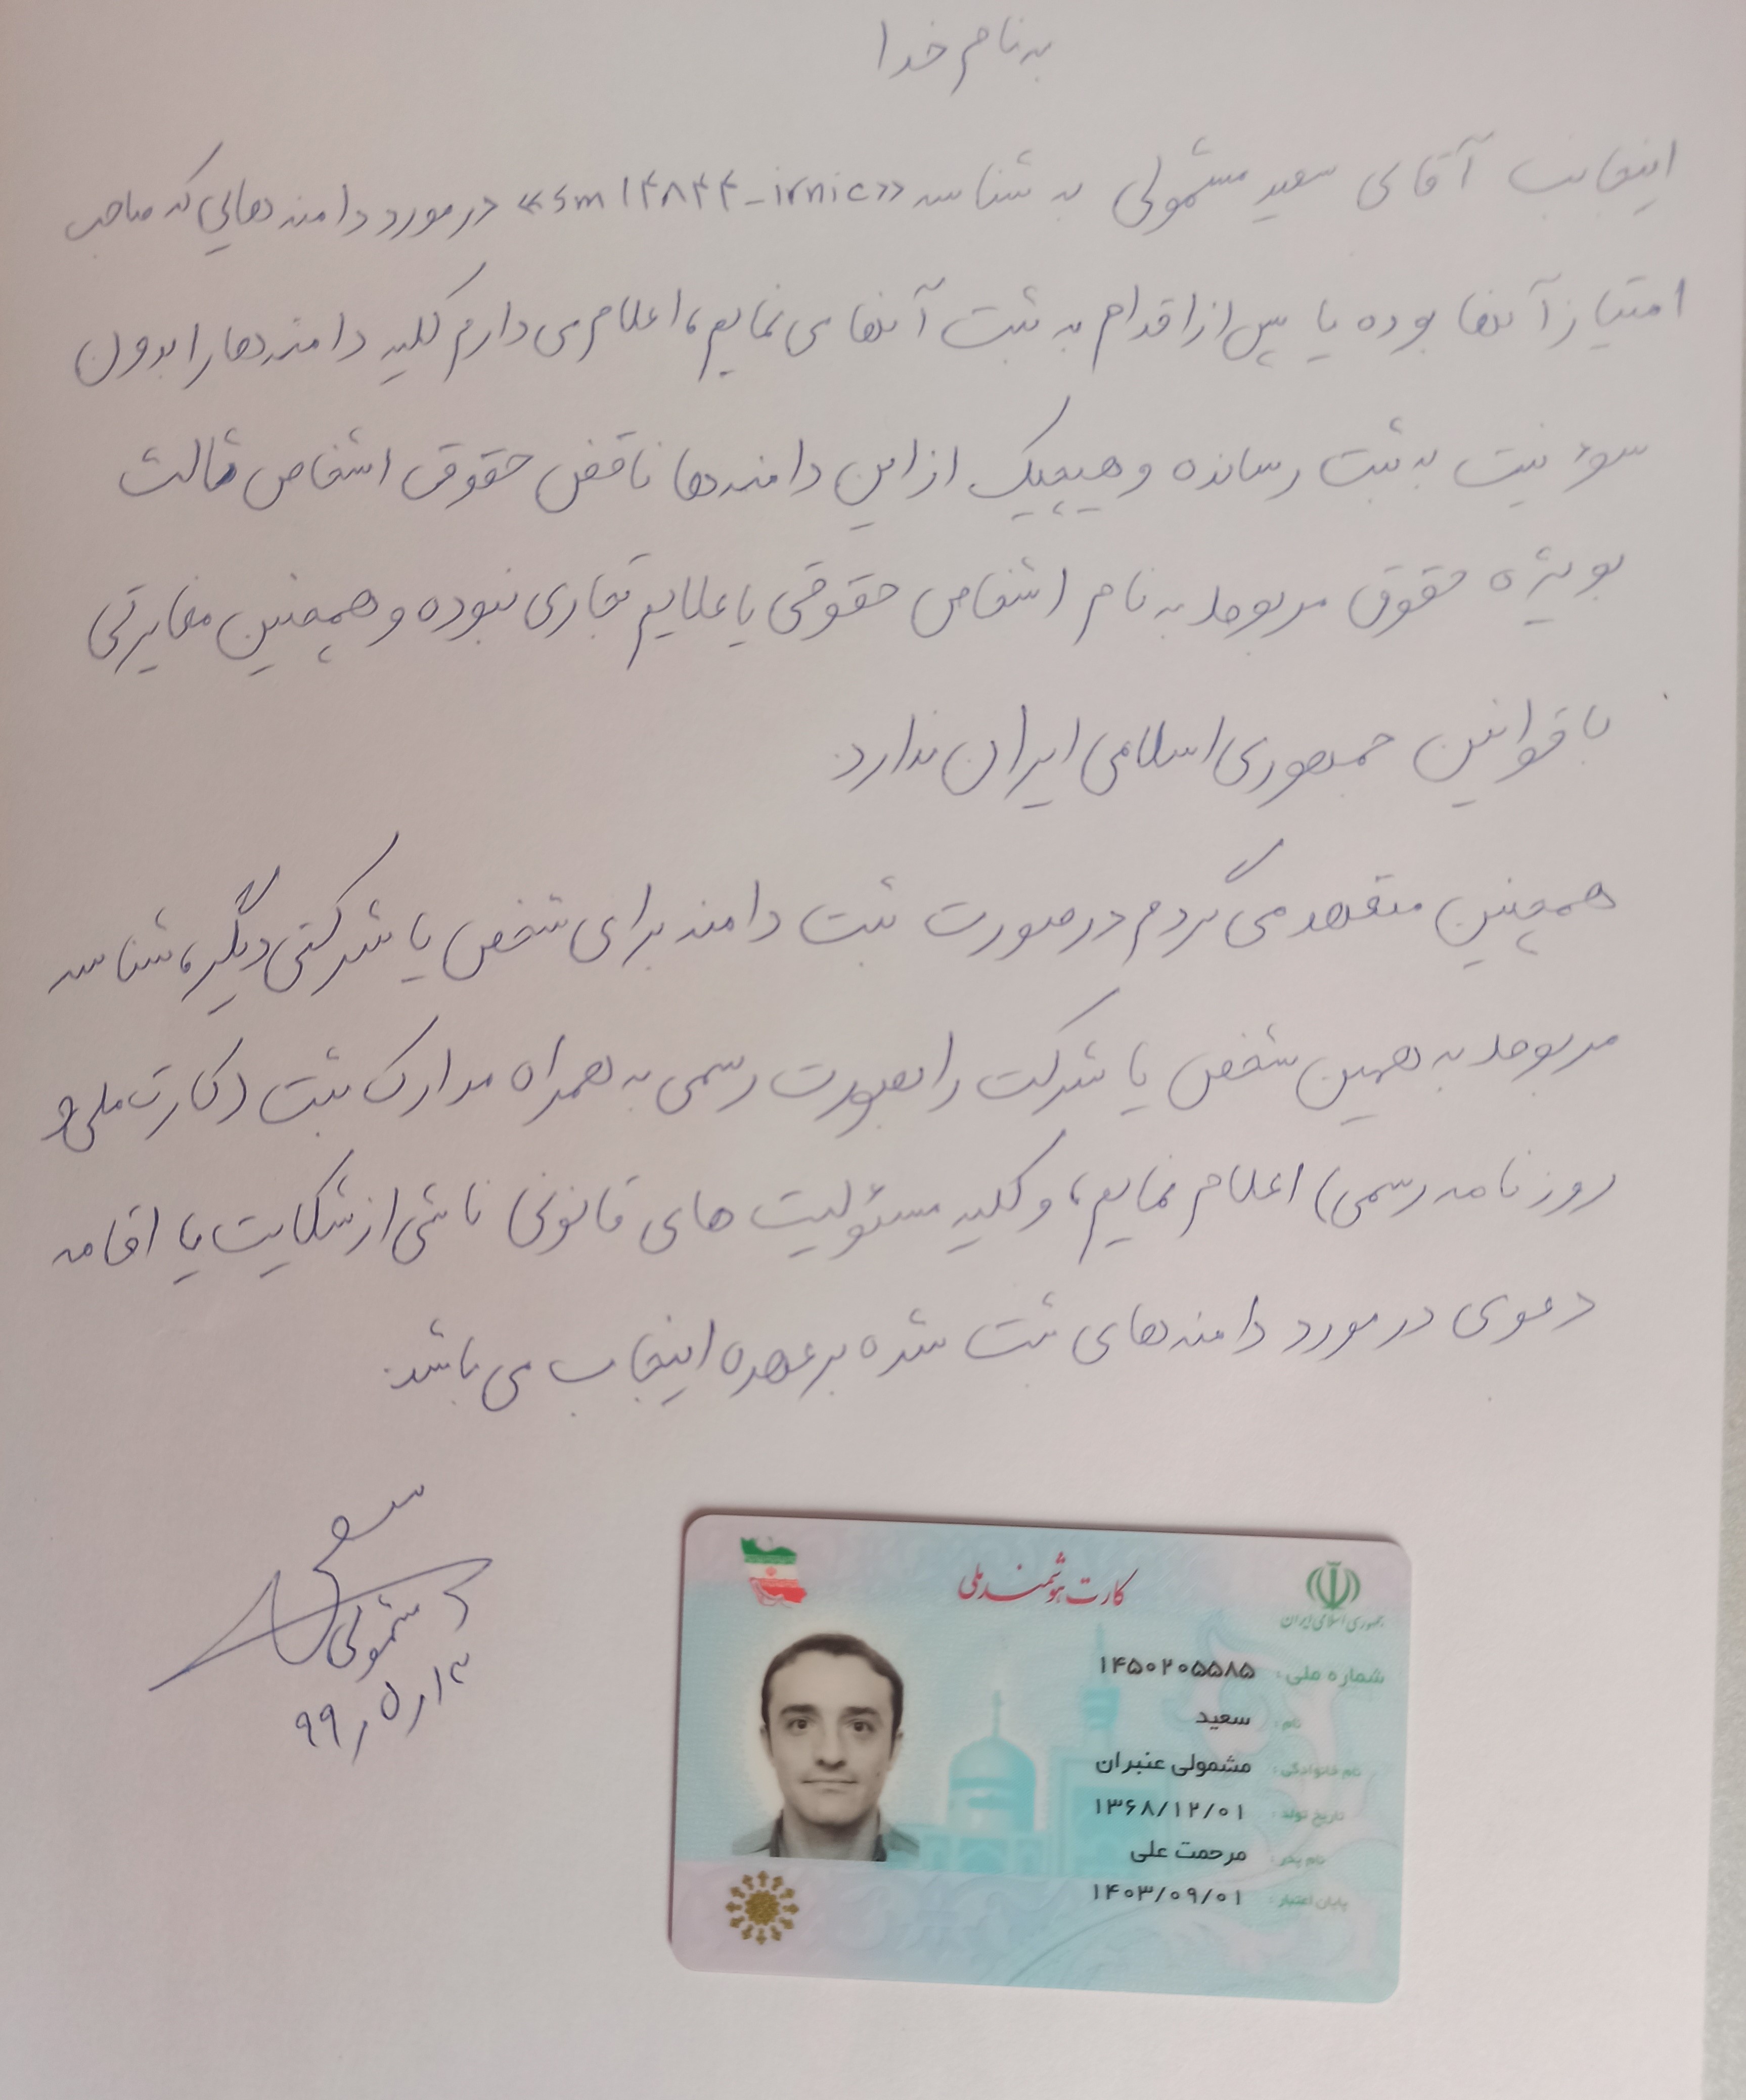 به نام خدا
اینجانب آقای سعید مشمولی به شناسه «sm۱۴۸۴۴-irnic» در مورد دامنه هایی که صاحب
امتیاز آنها بوده یا پس از اقدام به ثبت آنها می نمایم، اعلام می دارم کلیه دامنه ها را بدون
سوء نیت به ثبت رسانده و هیچیک از این دامنه ها ناقض حقوق اشخاص ثالث
بویژه حقوق مربوط به نام اشخاص حقوقی یا علایم تجاری نبوده و همچنین مغایرتی
با قوانین جمهوری اسلامی ایران ندارد.
همچنین متعهد می گردم در صورت ثبت دامنه برای شخص یا شرکتی دیگر، شناسه
مربوط به همین شخص یا شرکت را بصورت رسمی به همراه مدارک ثبت (کارت ملی و
روزنامه رسمی) اعلام نمایم، و کلیه مسئولیت های قانونی ناشی از شکایت یا اقامه
دعوی در مورد دامنه های ثبت شده بر عهده اینجانب می باشد.
سعید
مشمولی
۹۹/۵/۱۳
کارت هوشمند ملی
جمهوری اسلامی ایران
شماره ملی: ۱۴۵۰۲۰۵۵۸۵
نام: سعید
نام خانوادگی: مشمولی عنبران
تاریخ تولد: ۱۳۶۸/۱۲/۰۱
نام پدر: مرحمت علی
پایان اعتبار: ۱۴۰۳/۰۹/۰۱